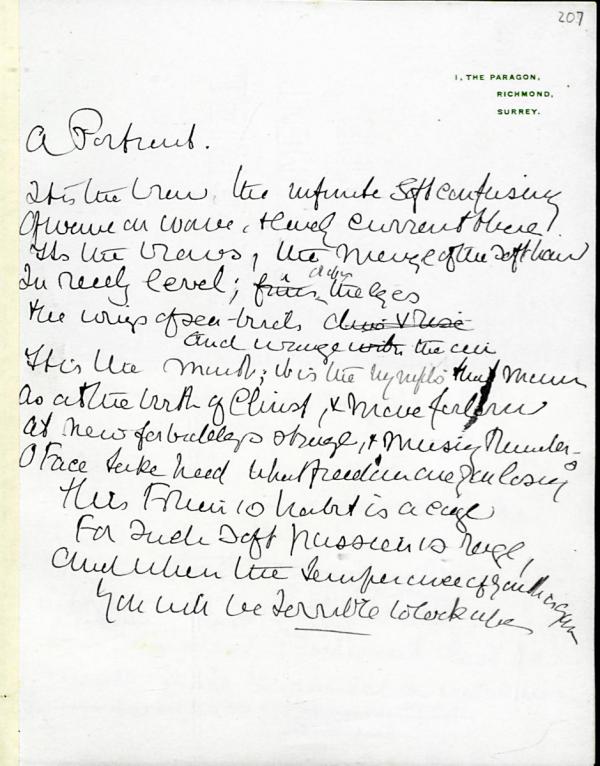 207
1, THE PARAGON,
RICHMOND,
SURREY.
A Portrait.
It is the brow, the infinite soft confusing
Of wave on wave, & lovely current there!
Its the brows, the merge of the soft hair
In reedy level; the eyes
the wings of sea-birds
and with the air
It is the mouth; it is the nymphs that mourn
As at the birth of Christ, & move forlorn
At new strange, & musing
O Face take heed what freedom are you losing
This Form to habit is a cage
For such soft passion is rage,
And when the temperance of youth is gone
You will be terrible to look upon